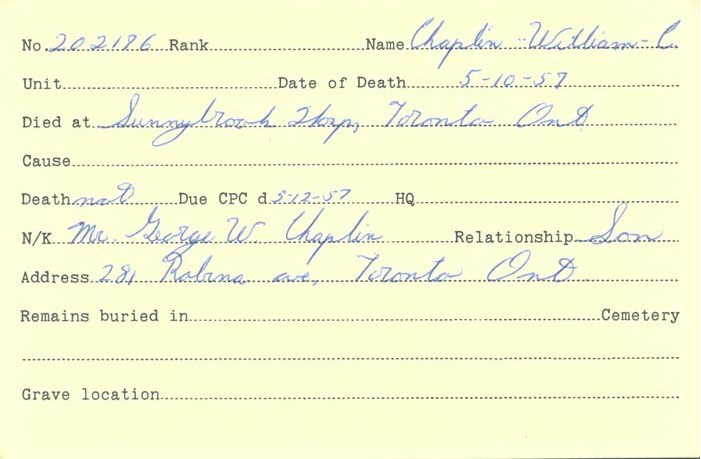 No. 202186 Rank Name Chaplin - William - C.
Unit Date of Death 5-10-57
Died at Sunnybrook Hosp, Toronto Ont
Cause
Death not Due CPC d 5-12-57 HQ
N/K Mr. George W. Chaplin Relationship Son
Address 281 Robina ave, Toronto Ont
Remains buried in Cemetery
Grave location